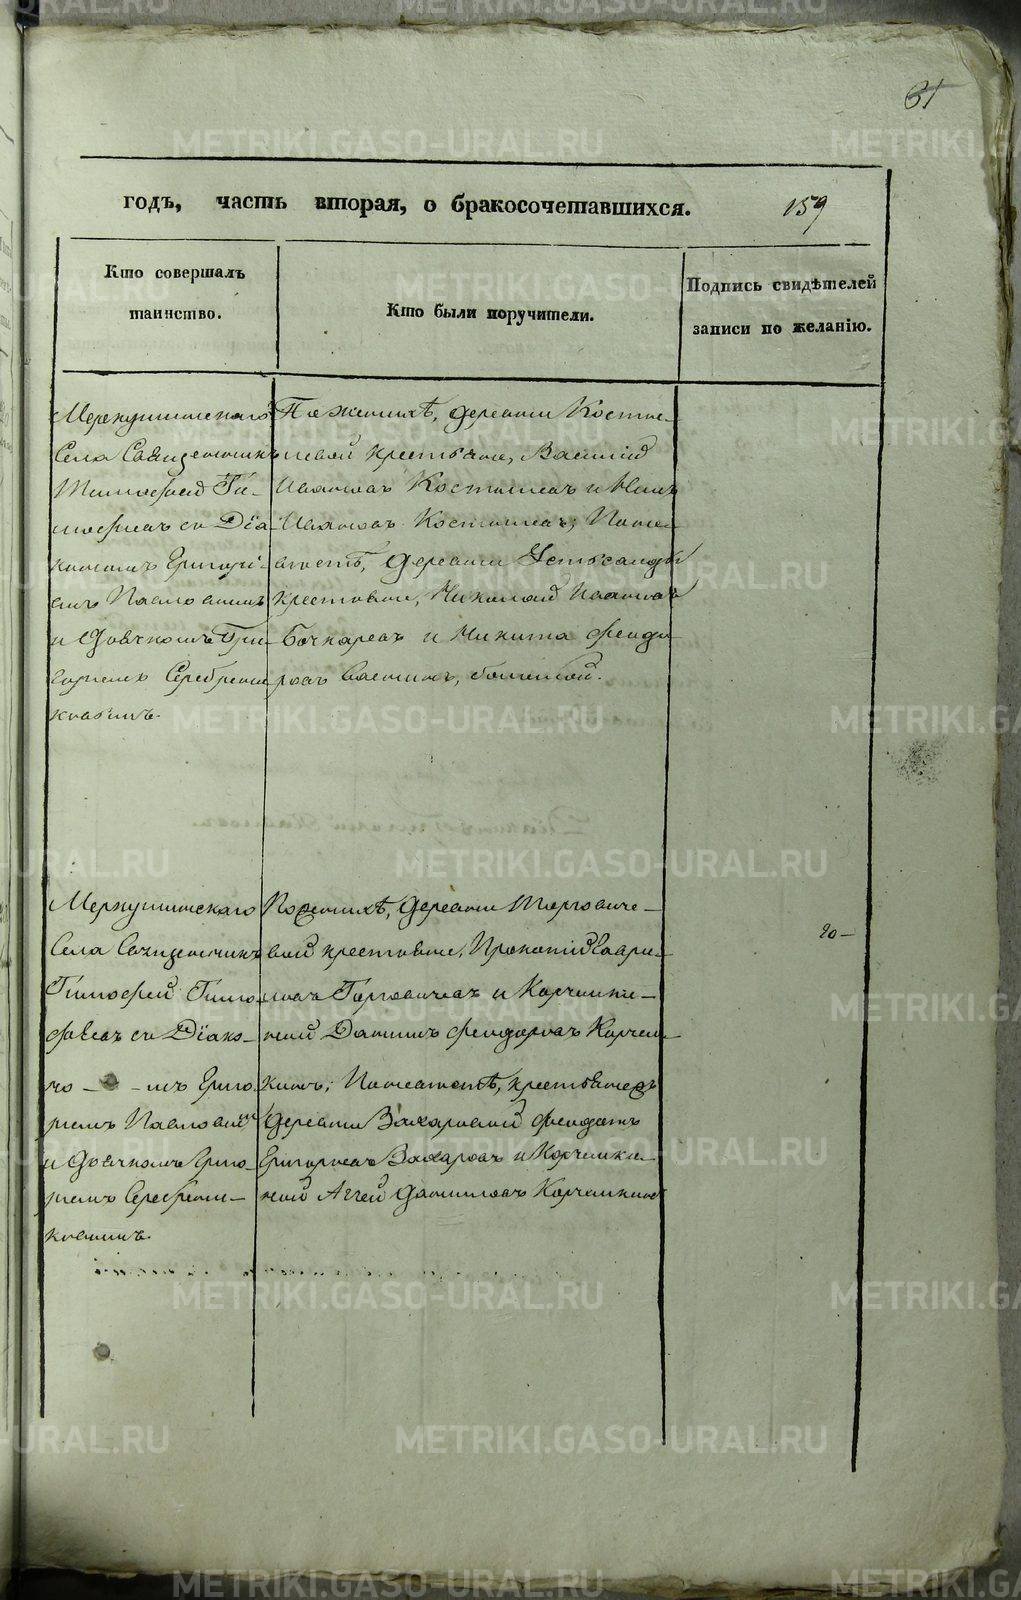 61
годъ, часть вторая, о бракосочетавшихся. 159
Кто совершалъ
таинство.
Кто были поручители.
Подпись свидѣтелей
записи по желанію.
Меркушинскаго
Села Священникъ
Тимофей Ти-
мофеевъ съ Діа-
кономъ Григорі-
емъ Павловымъ
и Дьячкомъ Гри-
горіемъ Серебрени-
ковымъ.
По женихѣ, деревни Косты-
левой крестьяне, Василій
Ивановъ Костылевъ и
Ивановъ Костылевъ; По не-
вѣстѣ, деревни Устьсалды
крестьяне, Николай Ивановъ
Бочкаревъ и Никита Феодо-
ровъ
Меркушинскаго
Села Священникъ
Тимофей Тимо-
фѣевъ съ Діако-
но - - мъ Григо-
ріемъ Павловымъ
и Дьячкомъ Григо-
ріемъ Серебрени-
ковымъ.
По женихѣ, деревни Торговиче-
вой крестьяне, Прокопій Гаври-
ловъ Торговичевъ и Корчемки-
ной Данилъ Феодоровъ Корчем-
кинъ; По невѣстѣ, крестьяне
деревни Захаровой Феодотъ
Григорьевъ Захаровъ и Корчемки-
ной Аггей Даниловъ Корчемкинъ
20 —
METRIKI.GASO-URAL.RU